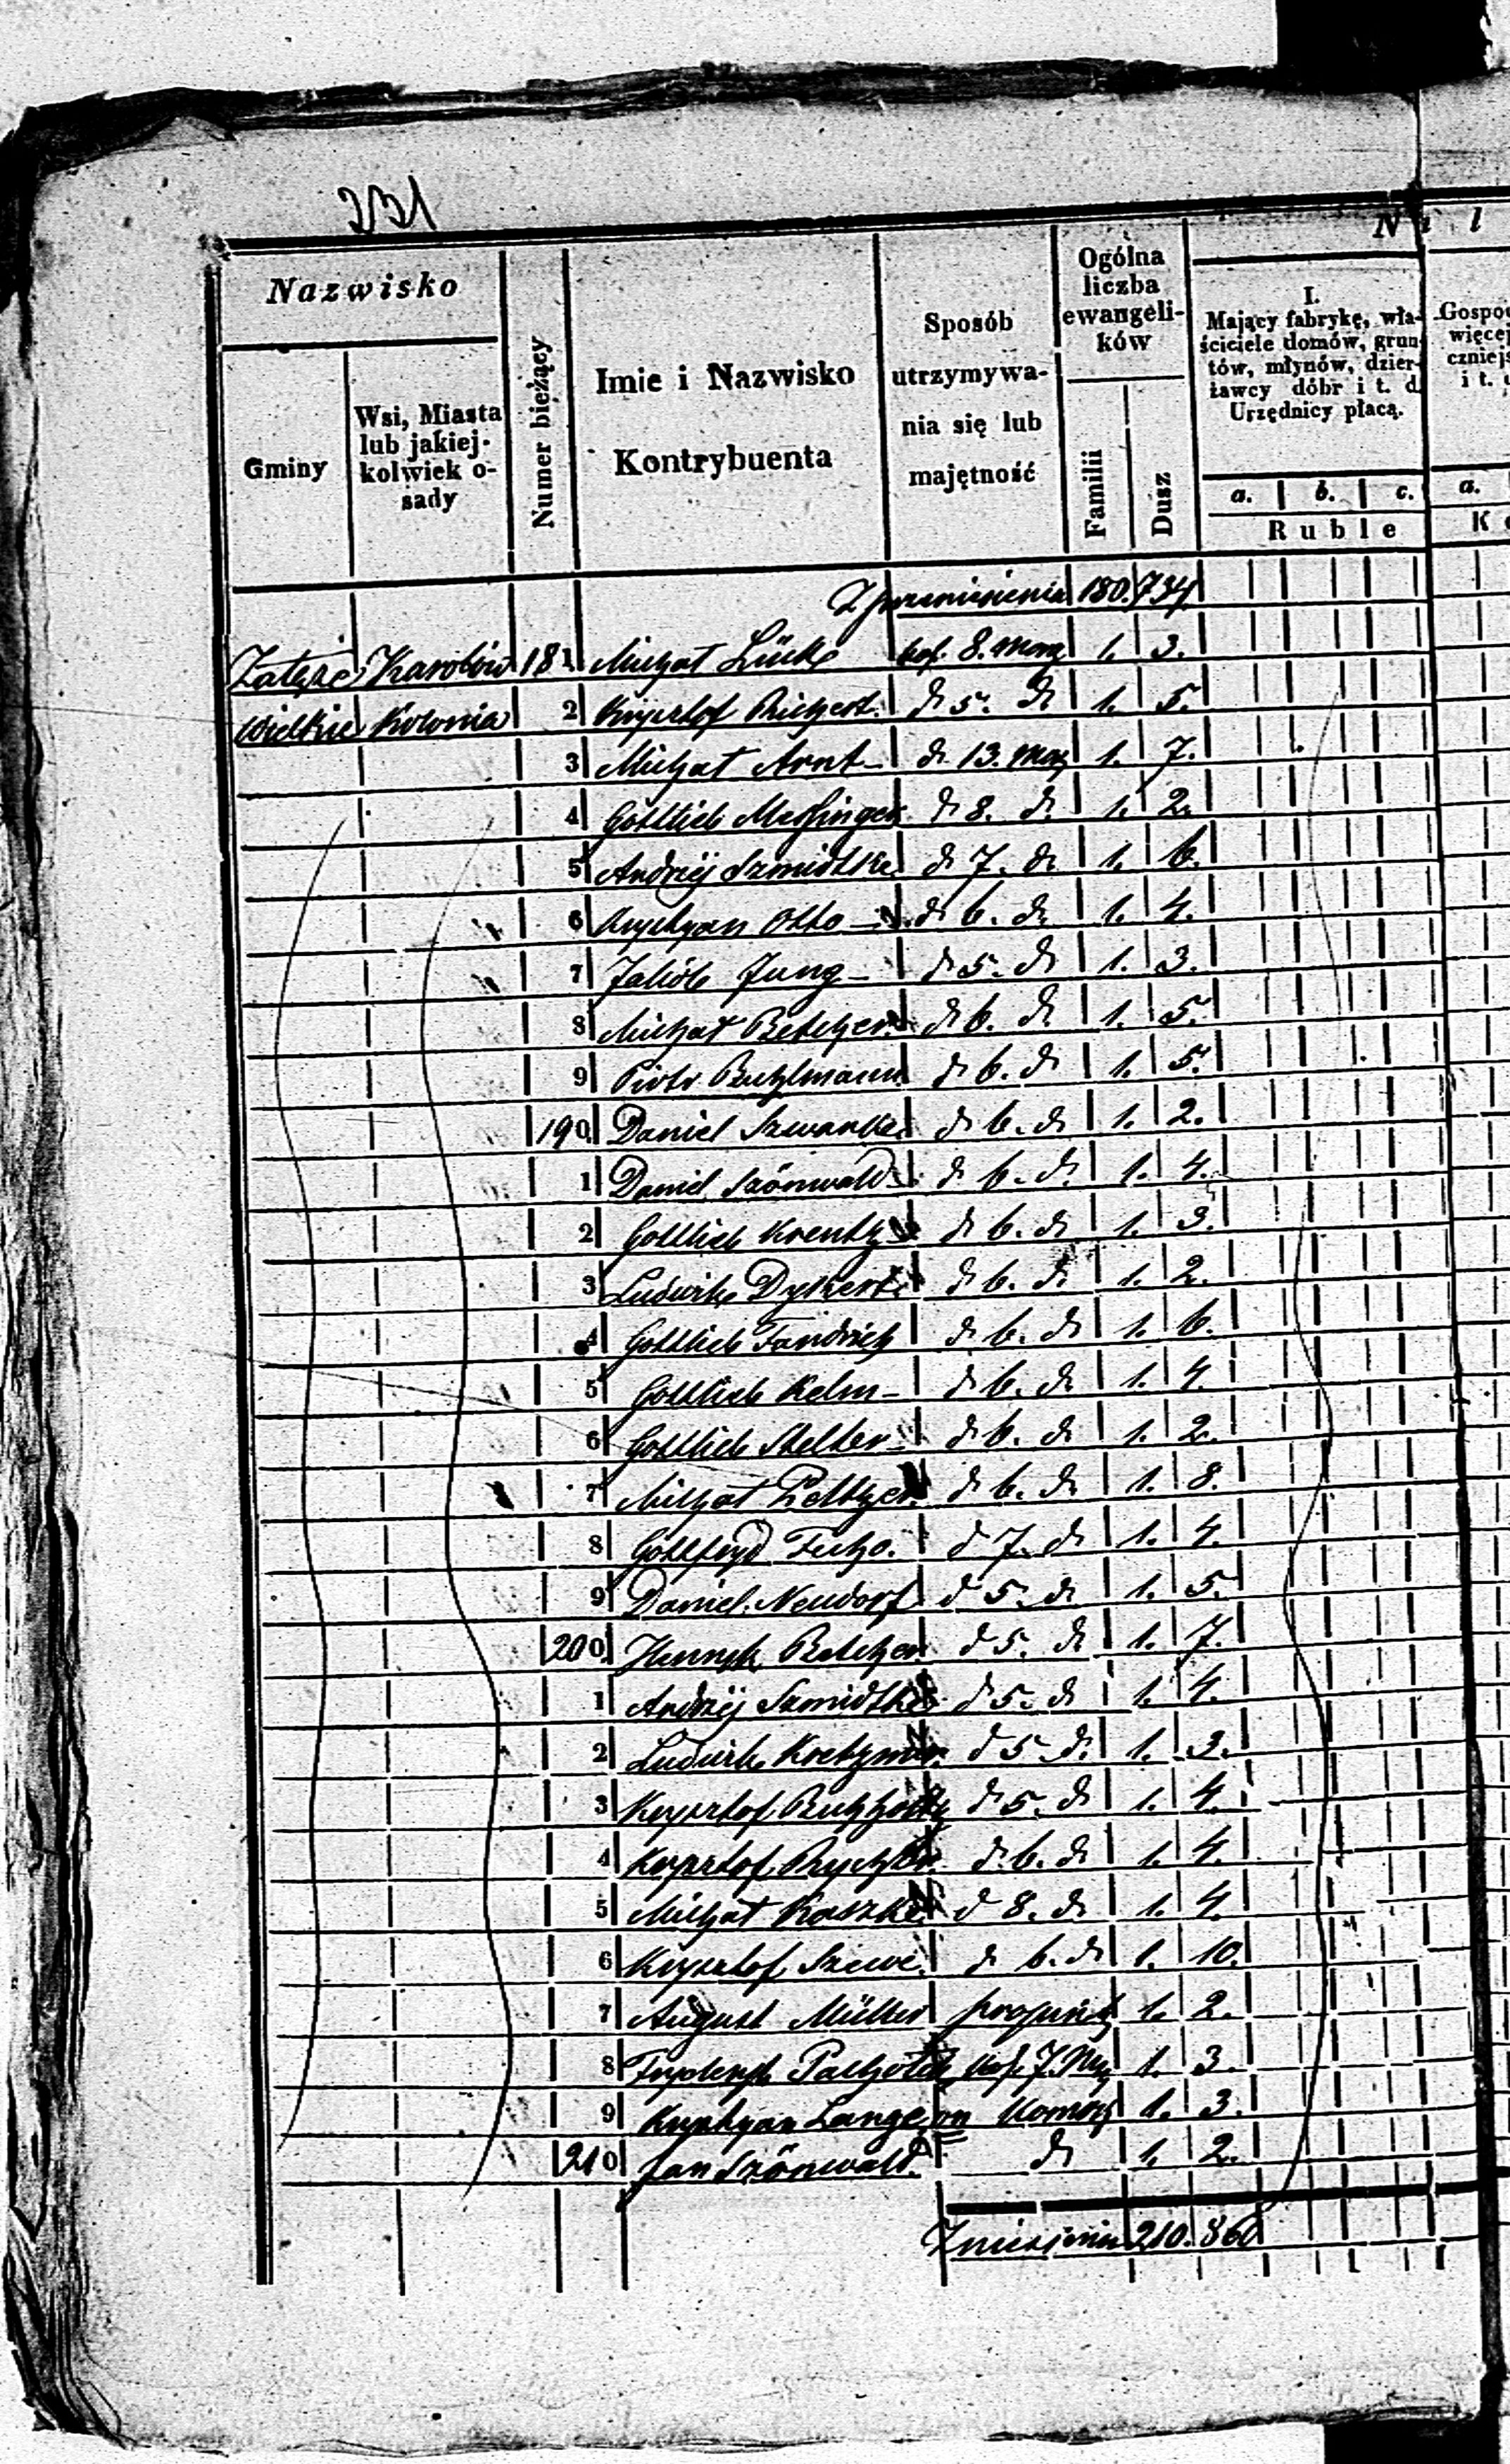 231
N a l
Nazwisko
Gminy
Wsi, Miasta lub jakiej-kolwiek o-sady
Numer bieżący
Imie i Nazwisko Kontrybuenta
Sposób utrzymywa-nia się lub majętność
Ogólna liczba ewangeli-ków
Familii
Dusz
I. Mający fabrykę, wła-ściciele domów, grun-tów, młynów, dzier-żawcy dóbr i t. d. Urzędnicy płacą.
a. b. c.
Ruble
a.
Z przeniesienia 180. 734.
Karolów 181 Michał Lück 8. Morg 1. 3.
Wielkie Kolonia 2 Krysztof 5. d 1. 5.
3 Michał Arnt d 13. Morg 1. 7.
4 Gottlieb Messinger d 8. d 1. 2.
5 Andrzéj Szmidtke d 7. d 1. 6.
6 Krystyan Otto d 6. d 1. 4.
7 Jakób Jung d 5. d 1. 3.
8 Michał Betcher d 6. d 1. 5.
9 Piotr d 6. d 1. 5.
190 Daniel Szwanke d 6. d 1. 2.
1 Daniel Szönwald d 6. d 1. 4.
2 Gottlieb Krentz d 6. d 1. 3.
3 Ludwik d 6. d 1. 2.
4 Gottlieb Fandrich d 6. d 1. 6.
5 Gottlieb Kelm d 6. d 1. 4.
6 Gottlieb Stelter d 6. d 1. 2.
7 Michał d 6. d 1. 8.
8 Gottfryd d 7. d 1. 4.
9 Daniel Neudorf d 5. d 1. 5.
200 Henryk Betcher d 5. d 1. 7.
1 Andrzéj Szmidtke d 5. d 1. 4.
2 Ludwik d 5. d 1.
3 Krysztof d 5. d 1. 4.
4 Krysztof d 6. d 1. 4.
5 Michał Kaszke d 8. d 1. 4.
6 Krysztof Szewe d 6. d 1. 10.
7 August Müller 1. 2.
8 Fryderyk 7. 1. 3.
9 Krystyan Lange 1. 3.
210 Jan Szönwald d 1. 2.
210. 860